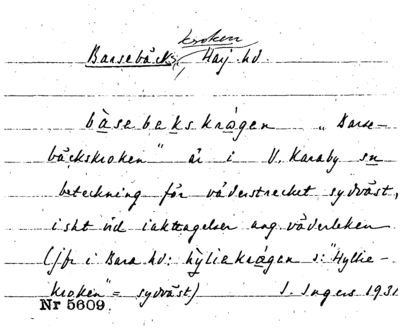 kroken
Barsebäcks, Harj. hd.
bàsebekskrágen „Barse-
bäckskroken" är i V. Karaby en
beteckning för väderstrecket sydväst,
isht vid iakttagelser ang. väderleken
(jfr i Bara hd: hỳliekrágen ɔ: "Hyllie-
kroken" = sydväst) I. Ingers 1931
Nr 5609